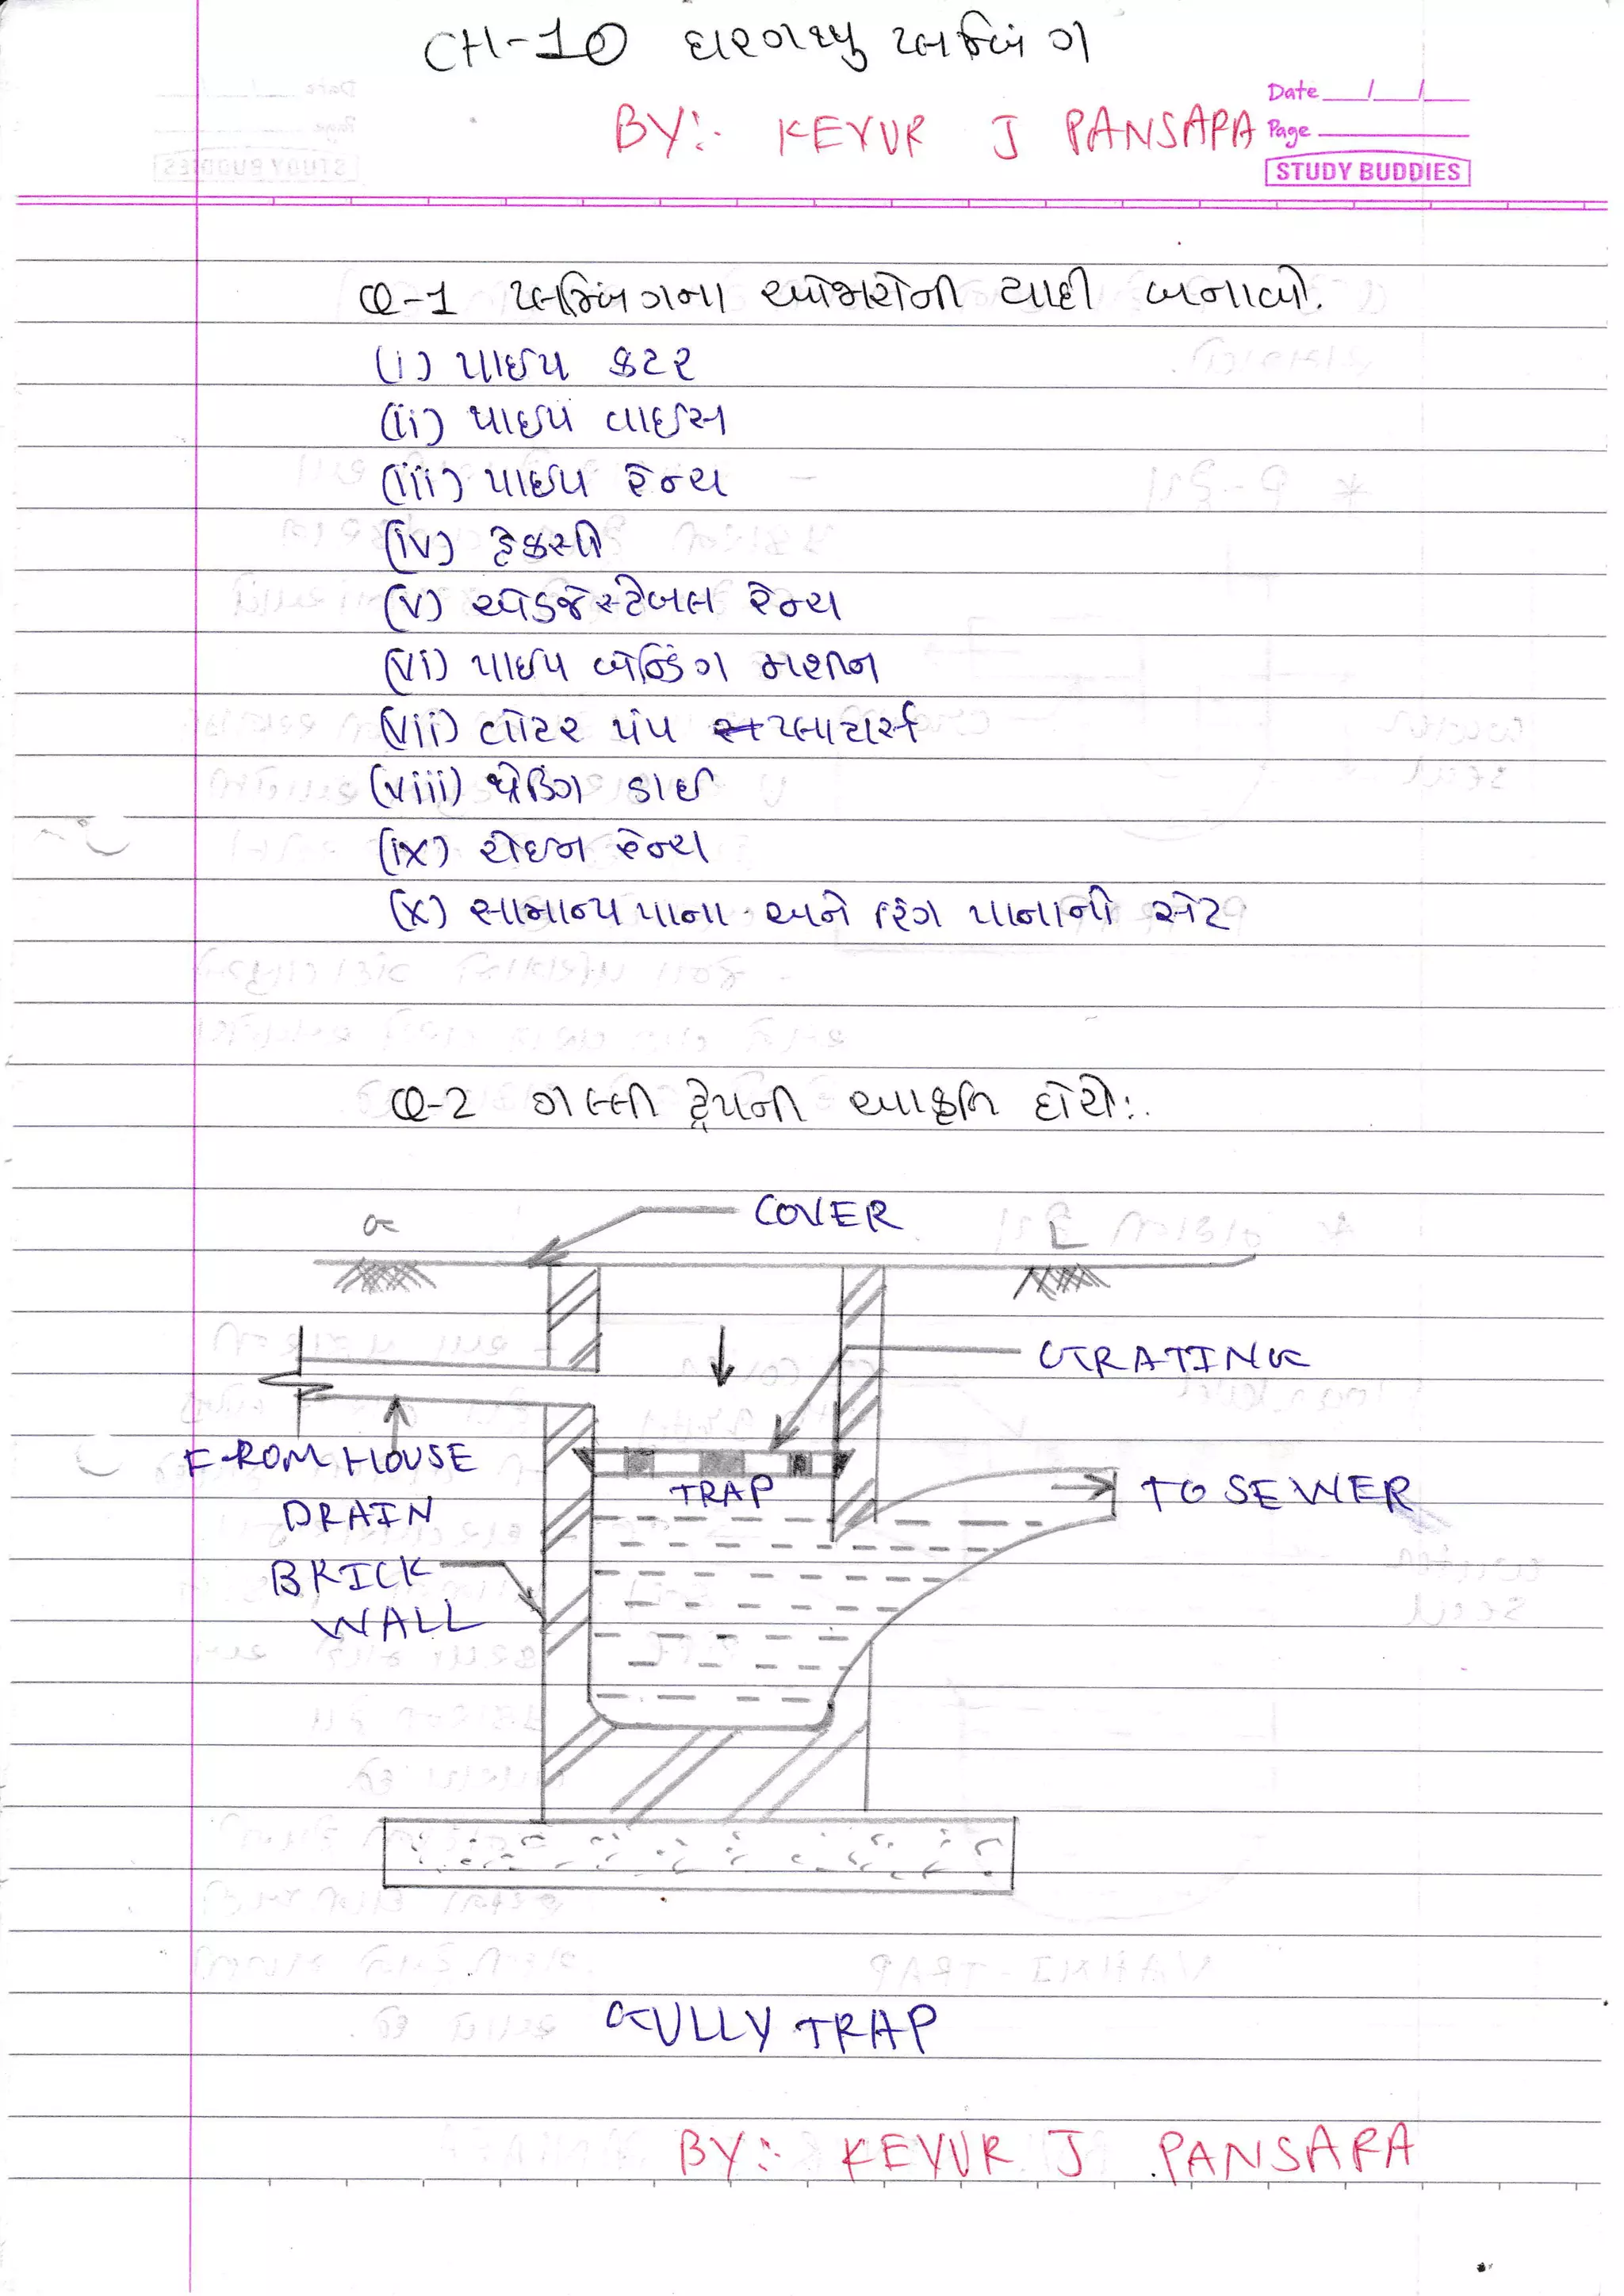 CH-10 ઘરગથ્થુ પ્લમ્બિંગ
BY:- KEYUR J PANSARA
Date / /
Page
STUDY BUDDIES
Q-1 પ્લમ્બિંગના ઓજારોની યાદી બનાવો.
(i) પાઈપ કટર
(ii) પાઈપ વાઈસ
(iii) પાઈપ રેન્ચ
(iv) હેકસો
(v) એડજેસ્ટેબલ રેન્ચ
(vi) પાઈપ બેન્ડિંગ મશીન
(vii) વોટર પંપ પ્લાયર્સ
(viii) થ્રેડિંગ ડાઈ
(ix) ચેઈન રેન્ચ
(x) સામાન્ય પાના અને રિંગ પાનાનો સેટ
Q-2 ગલ્લી ટ્રેપની આકૃતિ દોરો:.
COVER
G L
GRATING
FROM HOUSE
DRAIN
TRAP
TO SEWER
BRICK
WALL
GULLY TRAP
BY:- KEYUR J PANSARA